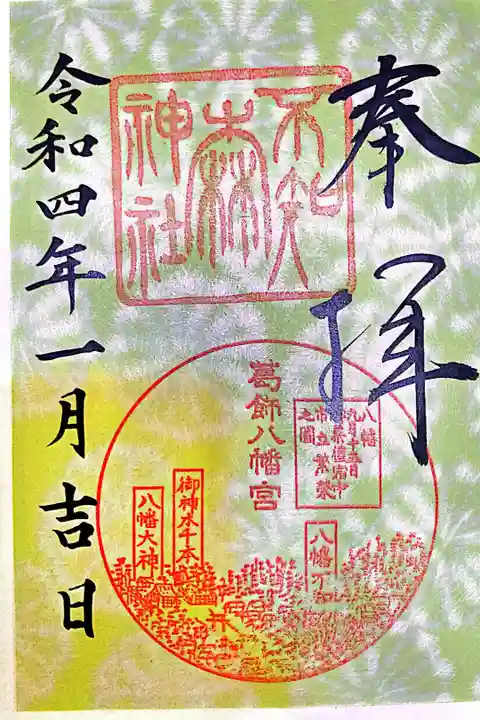 奉拝
不知
森
神社
葛飾八幡宮
八幡
九月十五日
市立繁榮
之圖
八幡不知
御神木千本
八幡大神
令和四年一月吉日